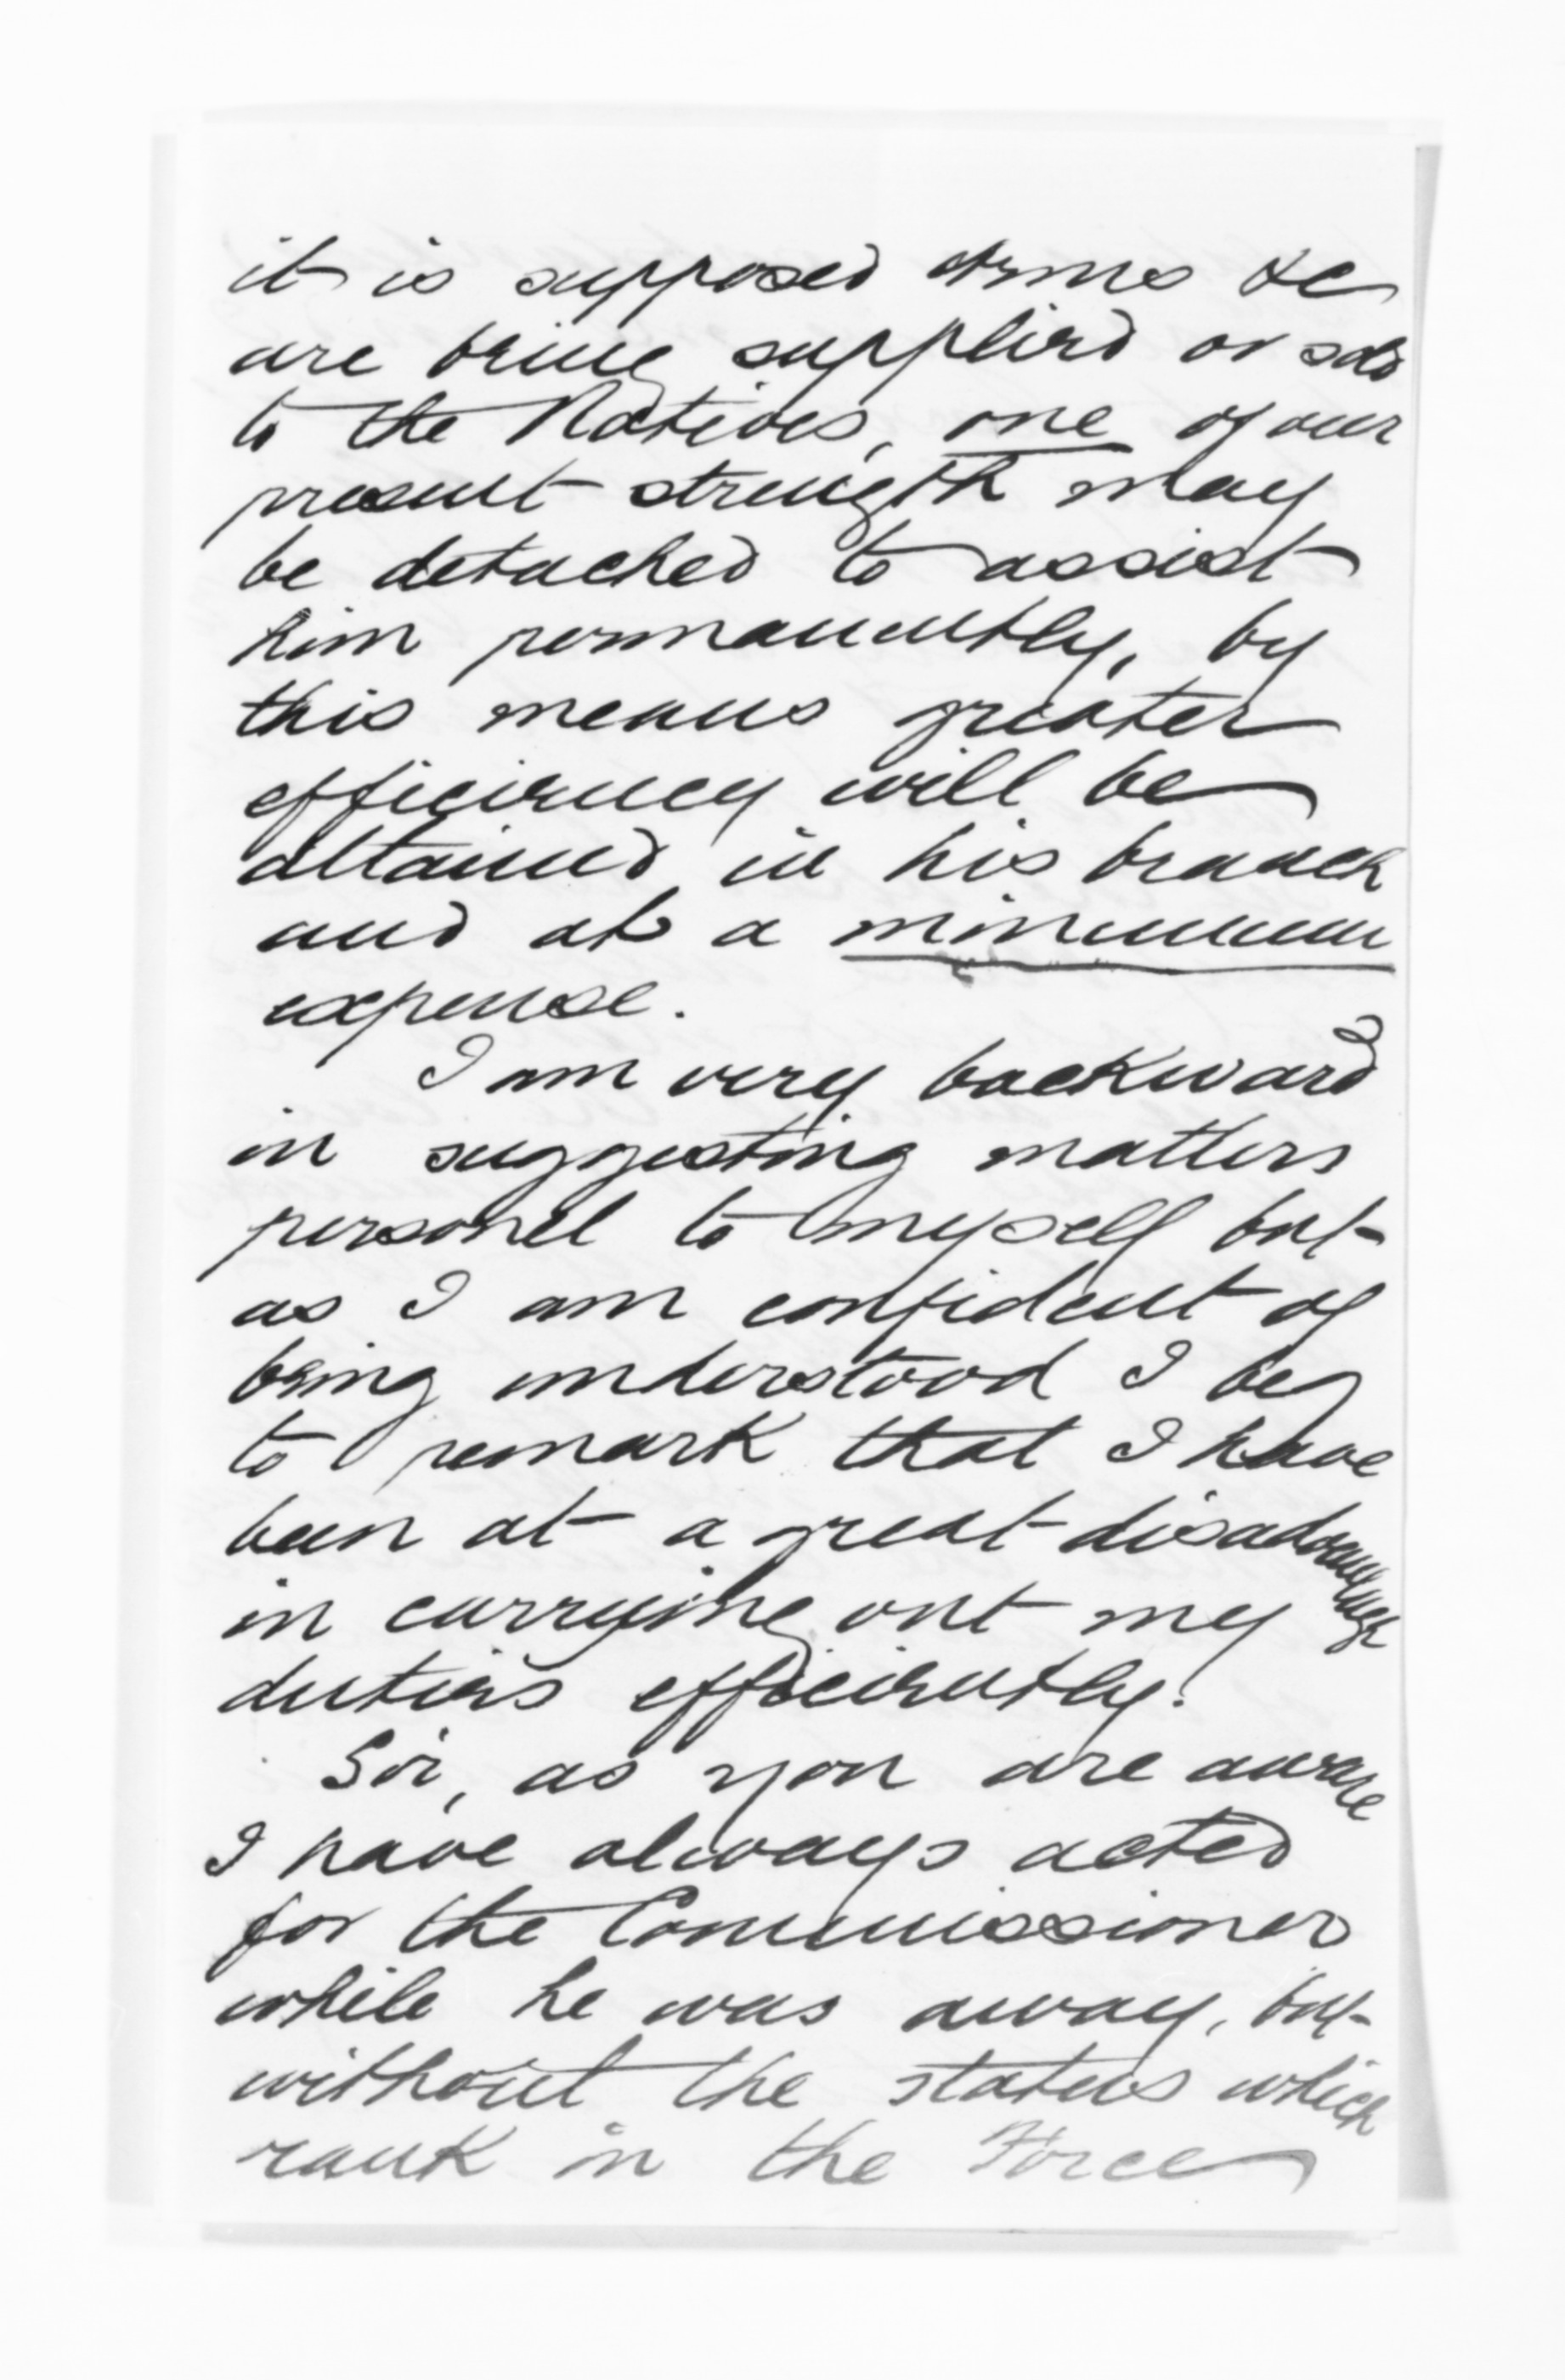 it is supposed arms &c
are being supplied or sold
to the Natives, one of our
present strength may
be detached to assist
him permanently, by
this means greater
efficiency will be
attained in his branch
and at a minimum
expense.
I am very backward
in suggesting matters
personel to myself but
as I am confident of
being understood I beg
to remark that I have
been at a great disadvantage
in carrying out my
duties efficiently.
Sir, as you are aware
I have always acted
for the Commissioner
while he was away, but
without the status which
rank in the Force